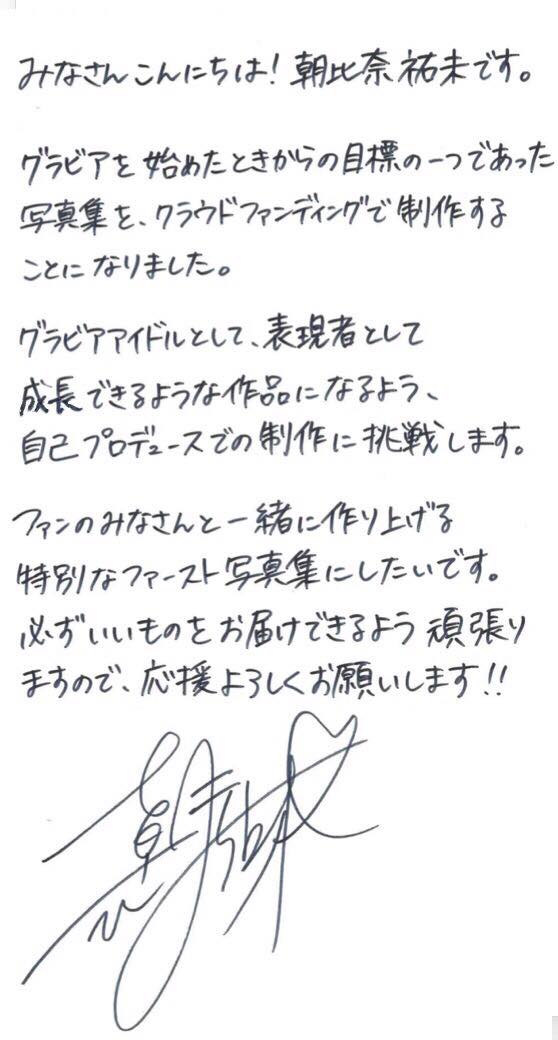 みなさんこんにちは！朝比奈祐未です。
グラビアを始めたときからの目標の一つであった
写真集を、クラウドファンディングで制作する
ことになりました。
グラビアアイドルとして、表現者として
成長できるような作品になるよう、
自己プロデュースでの制作に挑戦します。
ファンのみなさんと一緒に作り上げる
特別なファースト写真集にしたいです。
必ずいいものをお届けできるよう頑張り
ますので、応援よろしくお願いします!!